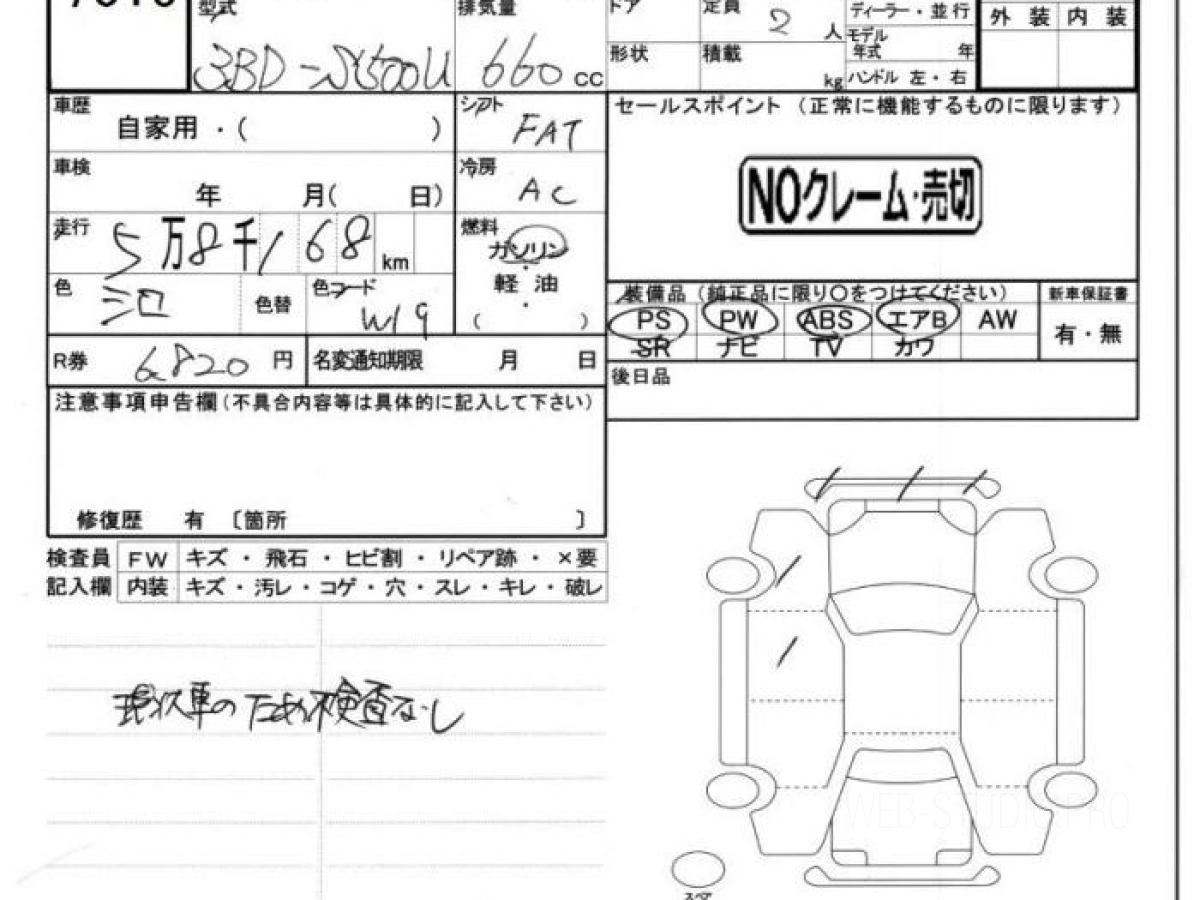 型式 排気量 ドア 定員 2 人 ディーラー・並行 外装 内装
3BD-S500U 660 cc モデル年式 年
形状 積載 kg ハンドル 左・右
車歴 シフト セールスポイント (正常に機能するものに限ります)
自家用・( ) FAT
車検 冷房 NOクレーム・売切
年 月( 日) AC
走行 5万8千168 km 燃料 ガソリン・軽油・( )
色 シロ 色替 色コード W19
装備品(純正品に限り○をつけてください) 新車保証書
PS PW ABS エアB AW 有・無
SR ナビ TV カワ
R券 6820 円 名変通知期限 月 日 後日品
注意事項申告欄(不具合内容等は具体的に記入して下さい)
修復歴 有 〔箇所 〕
検査員 FW キズ・飛石・ヒビ割・リペア跡・×要
記入欄 内装 キズ・汚レ・コゲ・穴・スレ・キレ・破レ
現状車のため検査なし
WEB-STUDIO.PRO